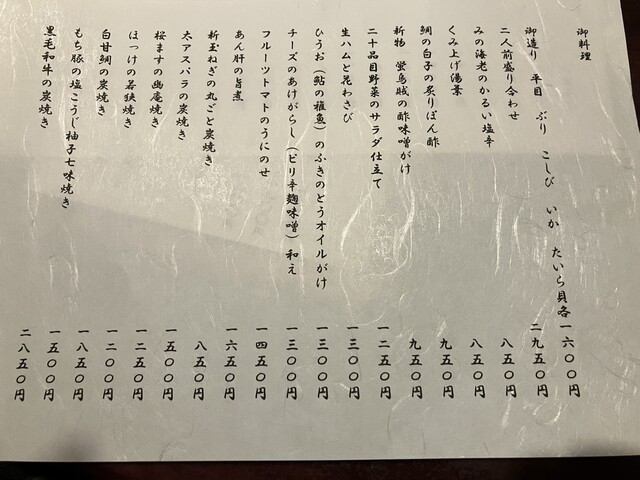 御料理
御造り 平目 ぶり こしび いか たいら貝各一六〇〇円
二人前盛り合わせ 二九五〇円
みの海老のかるい塩辛 八五〇円
くみ上げ湯葉 八五〇円
鯛の白子の炙りぽん酢 九五〇円
新物 蛍烏賊の酢味噌がけ 九五〇円
二十品目野菜のサラダ仕立て 一二五〇円
生ハムと花わさび 一三〇〇円
ひうお（鮎の稚魚）のふきのとうオイルがけ 一三〇〇円
チーズのあけがらし（ピリ辛麹味噌）和え 一三〇〇円
フルーツトマトのうにのせ 一四五〇円
あん肝の旨煮 一六五〇円
新玉ねぎの丸ごと炭焼き 八五〇円
太アスパラの炭焼き 一五〇〇円
桜ますの幽庵焼き 一二五〇円
ほっけの若狭焼き 一二〇〇円
白甘鯛の炭焼き 一八五〇円
もち豚の塩こうじ柚子七味焼き 一五〇〇円
黒毛和牛の炭焼き 二八五〇円